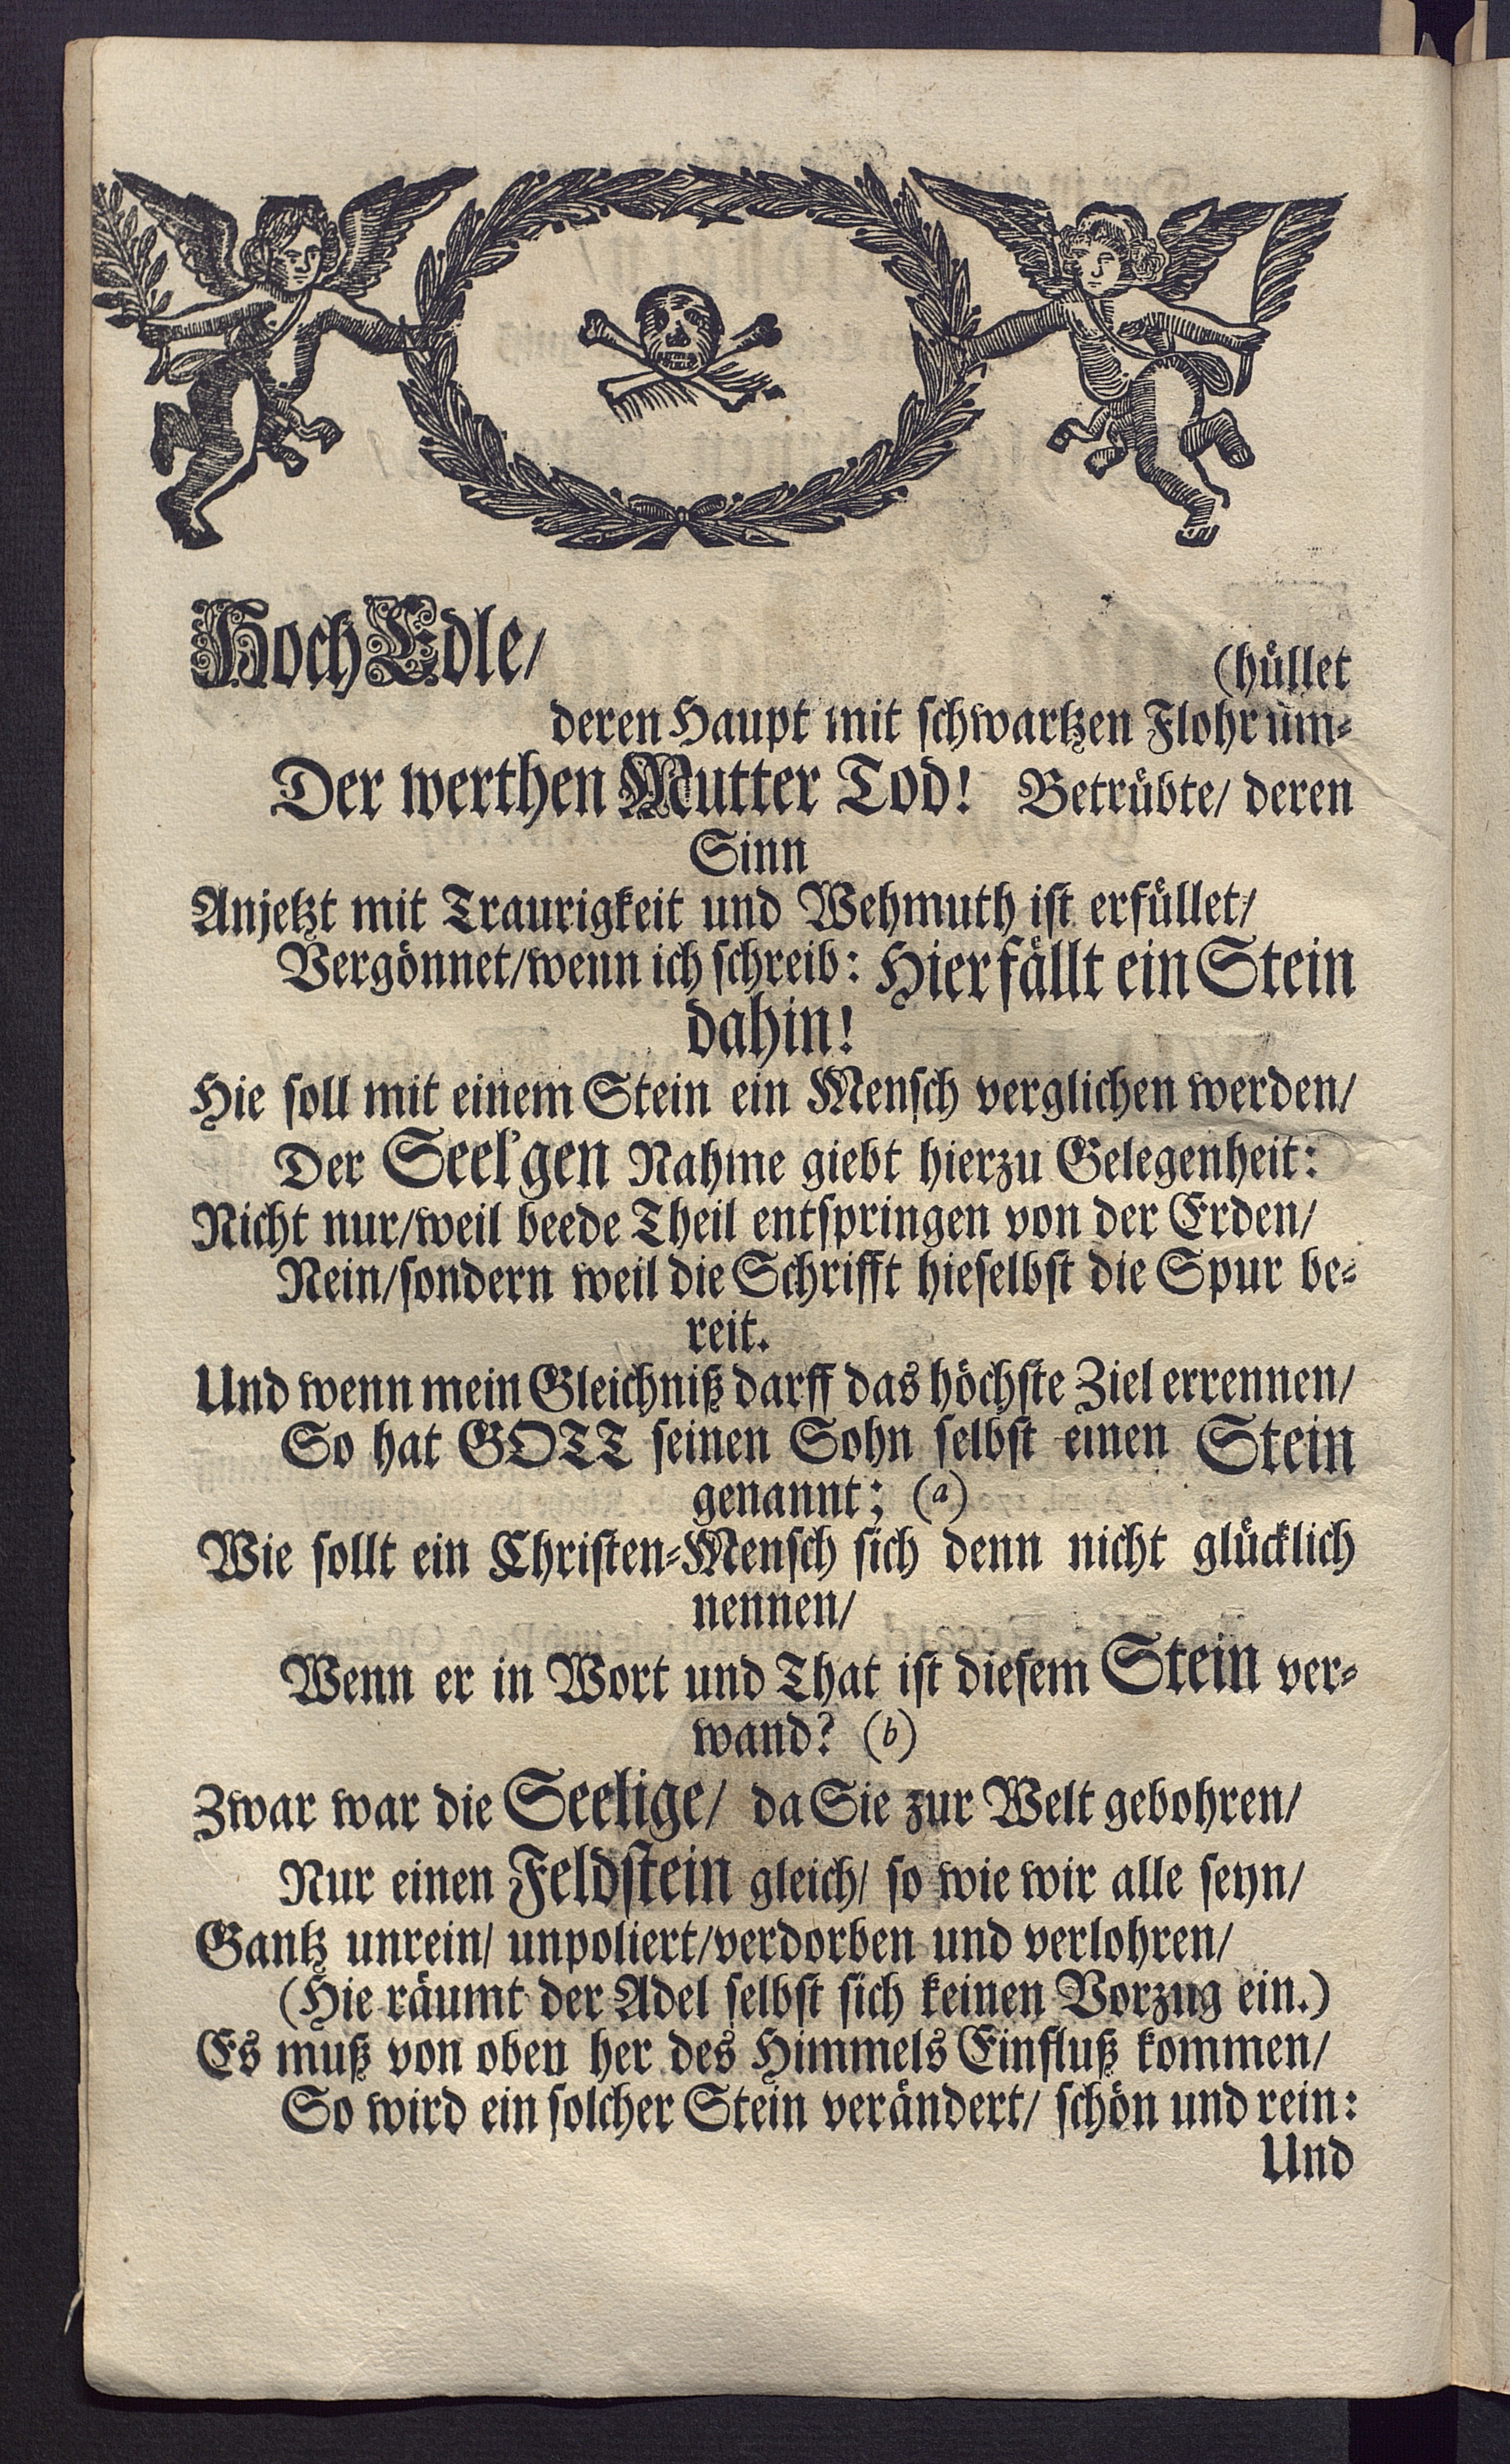 HochEdle/
(hüllet
deren Haupt mit schwartzen Flohr üm-
Der werthen Mutter Tod! Betrübte/ deren
Sinn
Anjetzt mit Traurigkeit und Wehmuth ist erfüllet/
Vergönnet/wenn ich schreib: Hier fällt ein Stein
dahin!
Hie soll mit einem Stein ein Mensch verglichen werden/
Der Seel'gen Nahme giebt hierzu Gelegenheit:
Nicht nur/weil beede Theil entspringen von der Erden/
Nein/sondern weil die Schrifft hieselbst die Spur be-
reit.
Und wenn mein Gleichniß darff das höchste Ziel errennen/
So hat GOTT seinen Sohn selbst einen Stein
genannt; (a)
Wie sollt ein Christen-Mensch sich denn nicht glücklich
nennen/
Wenn er in Wort und That ist diesem Stein ver-
wand? (b)
Zwar war die Seelige/ da Sie zur Welt gebohren/
Nur einen Feldstein gleich/ so wie wir alle seyn/
Gantz unrein/ unpoliert/verdorben und verlohren/
(Hie räumt der Adel selbst sich keinen Vorzug ein.)
Es muß von oben her des Himmels Einfluß kommen/
So wird ein solcher Stein verändert/ schön und rein:
Und